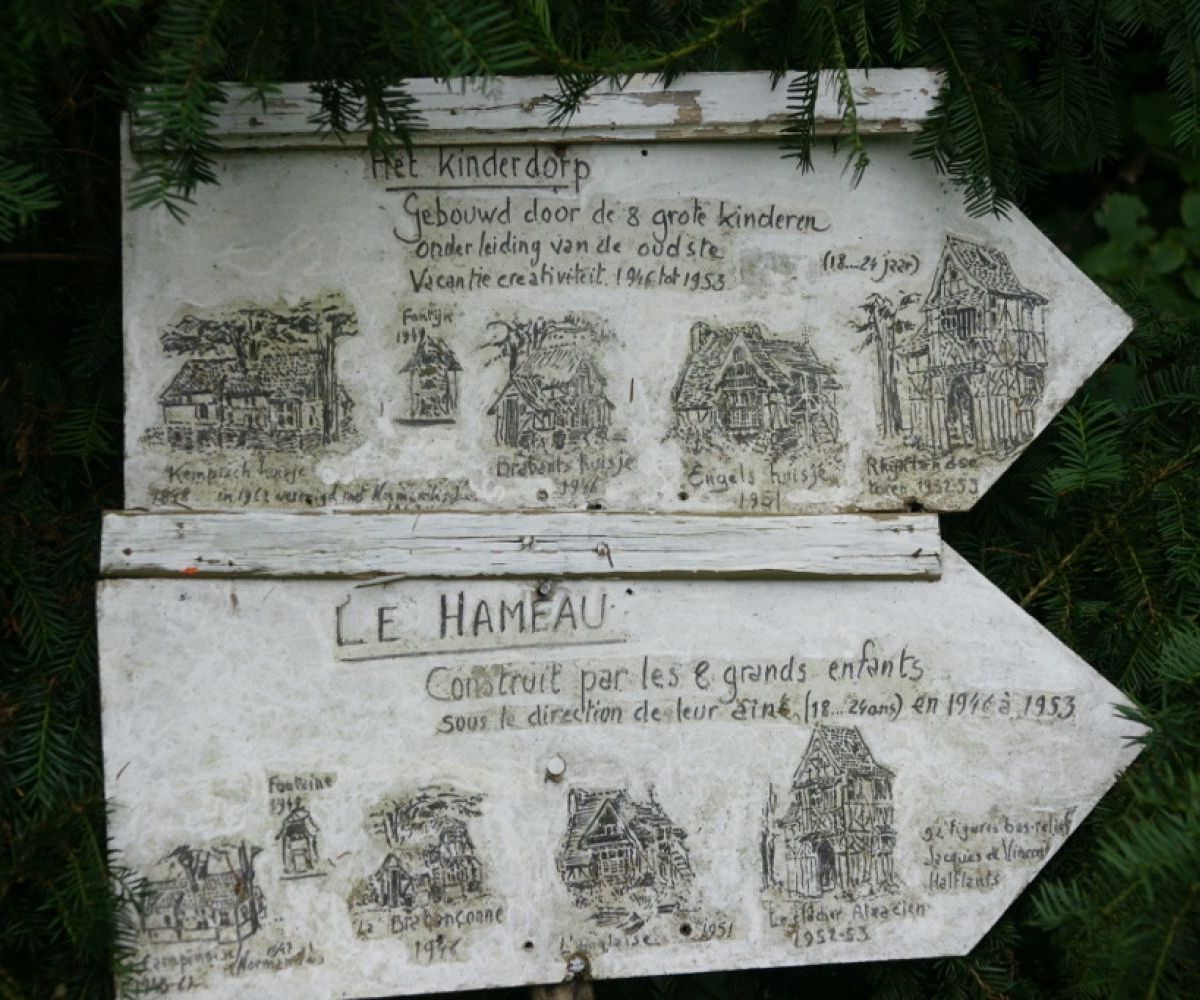 Het Kinderdorp
Gebouwd door de 8 grote kinderen
onder leiding van de oudste
(18...24 jaar)
Vacantie creativiteit. 1946 tot 1953
Fontijn
Kempisch
in 1962
Brabants huisje
1946
Engels huisje
1951
toren 1952-53
LE HAMEAU
Construit par les 8 grands enfants
sous le direction de leur aîné (18...24ans) en 1946 à 1953
Fontaine
1948
La Brabançonne
1946
L'anglaise 1951
Le clocher Alsacien
1952-53
figures bas-relief
Jacques et Vincent
Halflants